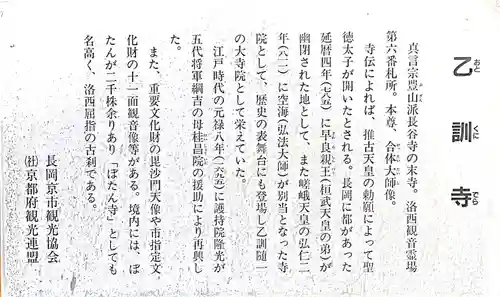 乙訓寺
おとくにでら
真言宗豊山派長谷寺の末寺。洛西観音霊場
第六番札所。本尊、合体大師像。
寺伝によれば、推古天皇の勅願によって聖
徳太子が開いたとされる。長岡に都があった
延暦四年(七八五)に早良親王(桓武天皇の弟)が
幽閉された地として、また嵯峨天皇の弘仁二
年(八一一)に空海(弘法大師)が別当となった寺
院として、歴史の表舞台にも登場し乙訓随一
の大寺院として栄えていた。
江戸時代の元禄八年(一六九五)に護持院隆光が
五代将軍綱吉の母桂昌院の援助により再興し
た。
また、重要文化財の毘沙門天像や市指定文
化財の十一面観音像等がある。境内には、ぼ
たんが二千株余りあり「ぼたん寺」としても
名高く、洛西屈指の古刹である。
長岡京市観光協会
(社)京都府観光連盟